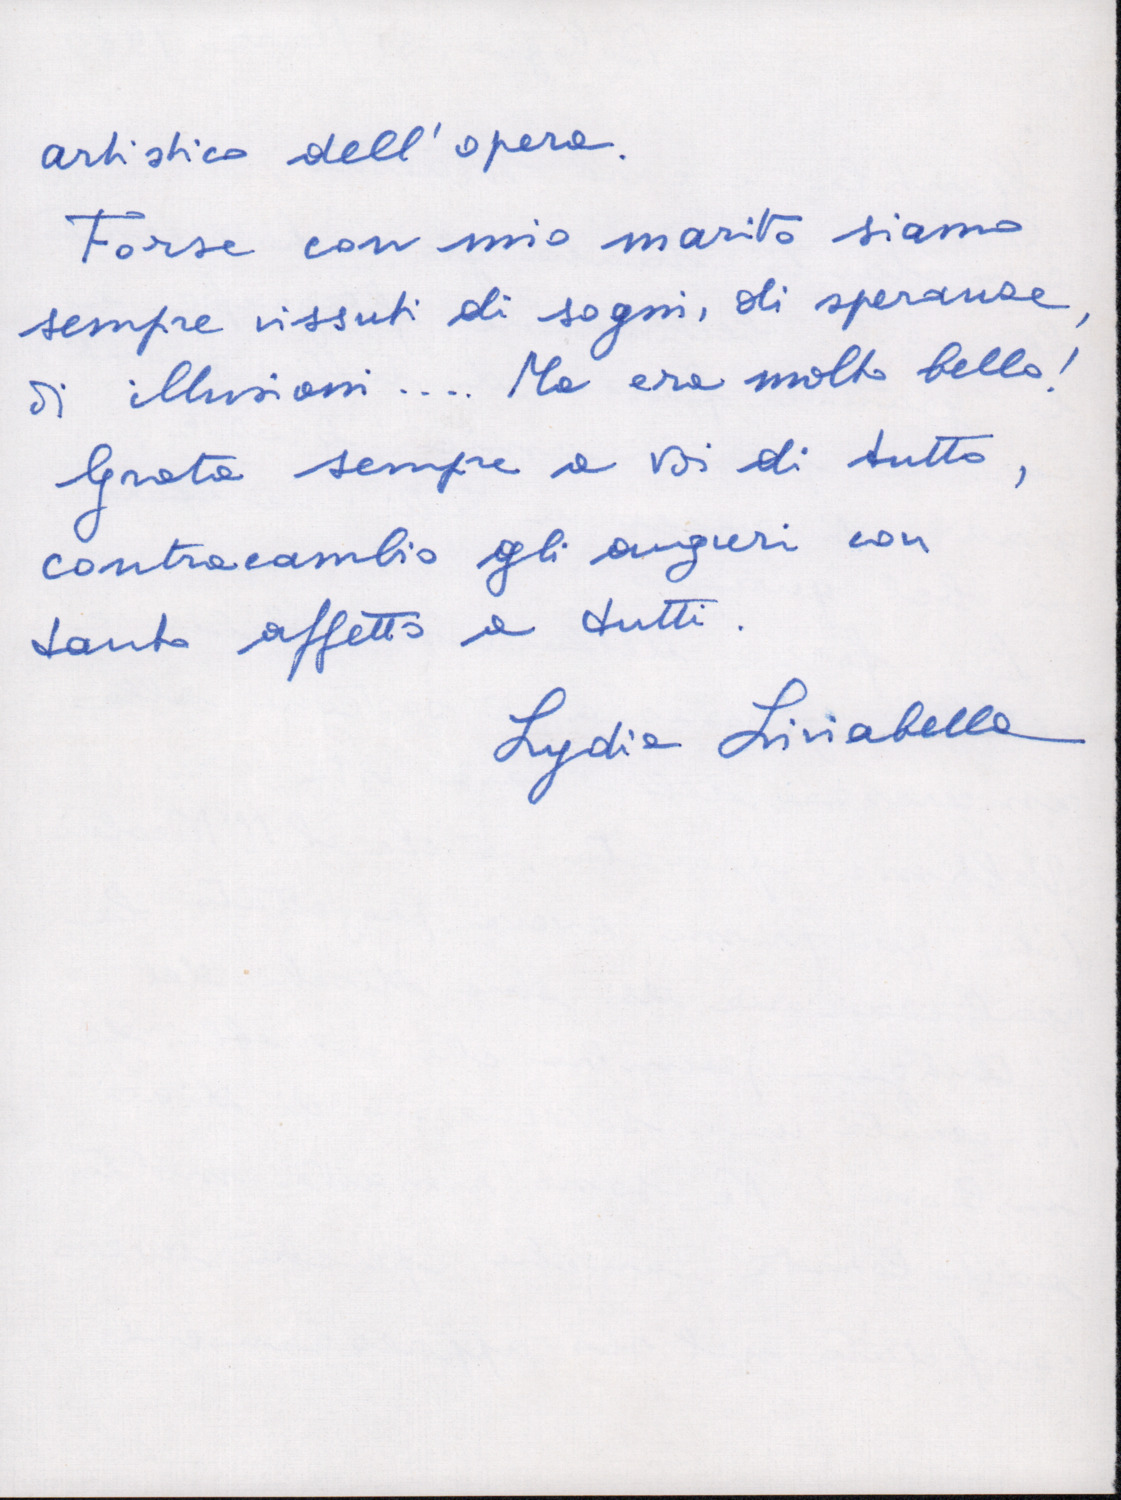 artistico dell'opera.
Forse con mio marito siamo
sempre vissuti di sogni, di speranze,
di illusioni.... Ma era molto bello!
Grata sempre a voi di tutto,
contracambio gli auguri con
tanto affetto a tutti.
Lydia Liviabella